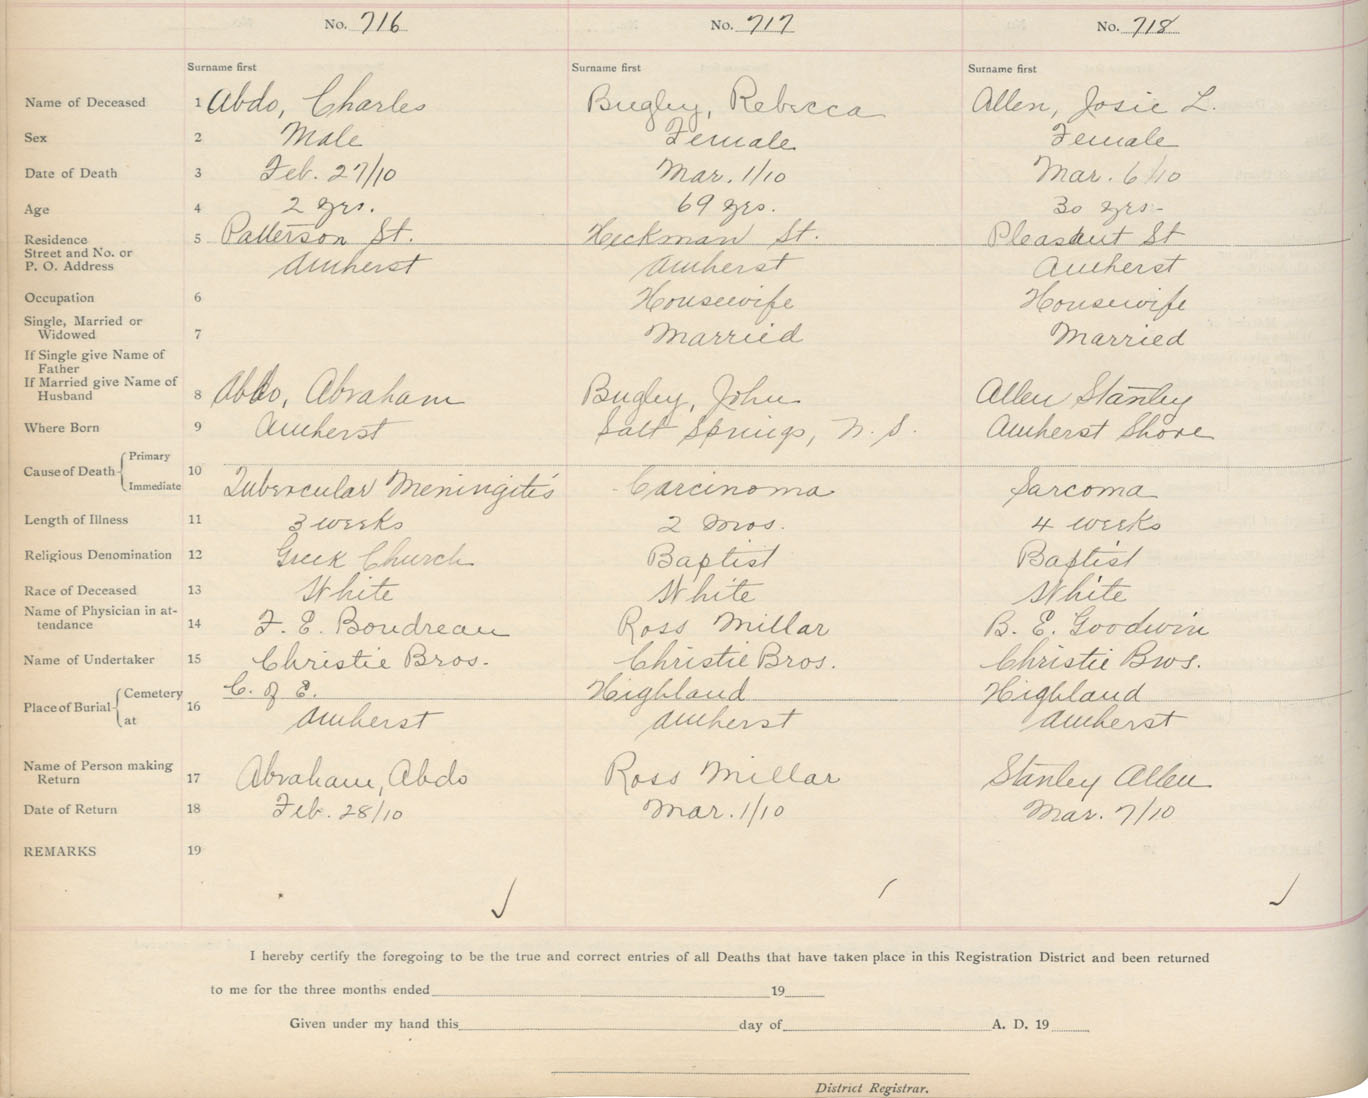 No. 716 No. 717 No. 718
Surname first Surname first Surname first
Name of Deceased 1 Abdo, Charles Bugley, Rebecca Allen, Josie L.
Sex 2 Male Female Female
Date of Death 3 Feb. 27/10 Mar. 1/10 Mar. 6/10
Age 4 2 yrs. 69 yrs. 30 yrs-
Residence 5 Patterson St. Heckman St. Pleasant St
Street and No. or
P. O. Address Amherst Amherst Amherst
Occupation 6 Housewife Housewife
Single, Married or
Widowed 7 Married Married
If Single give Name of
Father
If Married give Name of
Husband 8 Abdo, Abraham Bugley, John Allen Stanley
Where Born 9 Amherst Salt Springs, N. S. Amherst Shore
Primary
Cause of Death 10
Immediate Tubercular Meningitis Carcinoma Sarcoma
Length of Illness 11 3 weeks 2 mos. 4 weeks
Religious Denomination 12 Greek Church Baptist Baptist
Race of Deceased 13 White White White
Name of Physician in at-
tendance 14 F. E. Boudreau Ross Millar B. E. Goodwin
Name of Undertaker 15 Christie Bros. Christie Bros. Christie Bros.
Cemetery C. of E. Highland Highland
Place of Burial 16
at Amherst Amherst Amherst
Name of Person making
Return 17 Abraham, Abdo Ross Millar Stanley Allen
Date of Return 18 Feb. 28/10 Mar. 1/10 Mar. 7/10
REMARKS 19
I hereby certify the foregoing to be the true and correct entries of all Deaths that have taken place in this Registration District and been returned
to me for the three months ended 19
Given under my hand this day of A. D. 19
District Registrar.